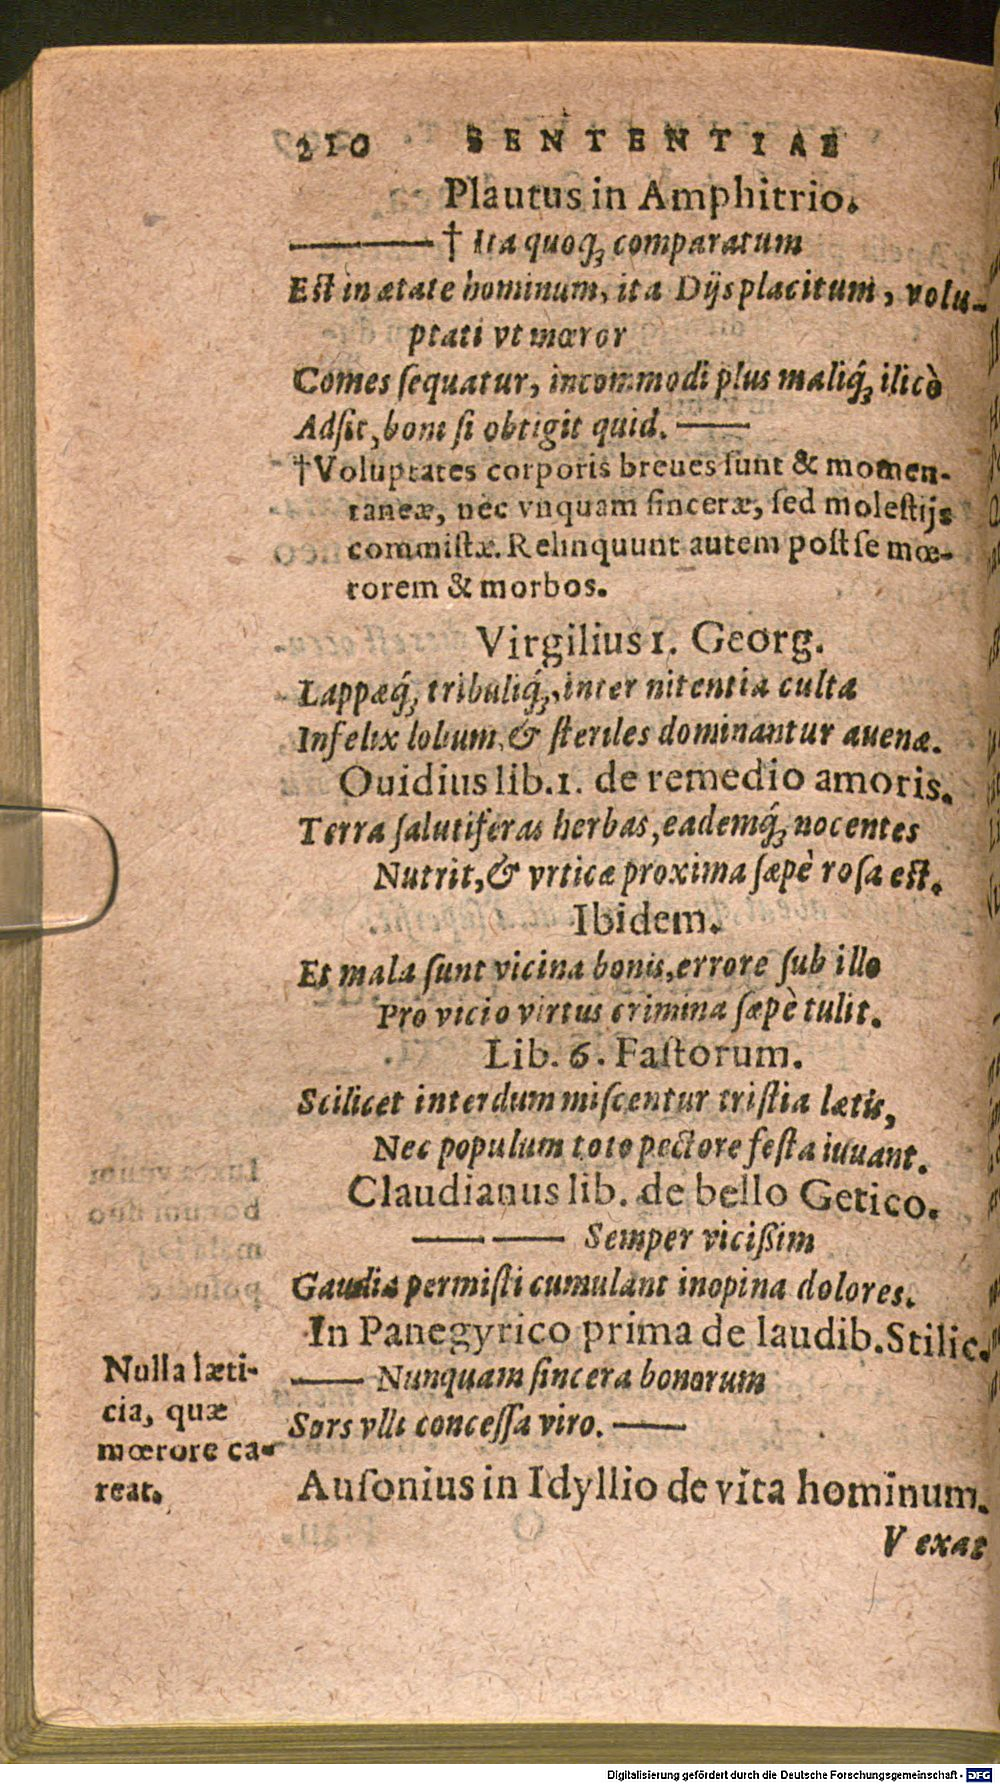 210 SENTENTIAE
Plautus in Amphitrio.
——— † Ita quoq́; comparatum
Est in ætate hominum, ita Dijs placitum, volu-
ptati vt mœror
Comes sequatur, incommodi plus maliq́; ilicò
Adsit, boni si obtigit quid. ——
†Voluptates corporis breues sunt & momen-
taneæ, nec vnquam sinceræ, sed molestijs
commistæ. Relinquunt autem post se mœ-
rorem & morbos.
Virgilius 1. Georg.
Lappæq́; tribuliq́;, inter nitentia culta
Infelix lolium, & steriles dominantur auenæ.
Ouidius lib. 1. de remedio amoris.
Terra salutiferas herbas, eademq́; nocentes
Nutrit, & vrticæ proxima sæpè rosa est.
Ibidem.
Et mala sunt vicina bonis, errore sub illo
Pro vicio virtus crimina sæpè tulit.
Lib. 6. Fastorum.
Scilicet interdum miscentur tristia lætis,
Nec populum toto pectore festa iuuant.
Claudianus lib. de bello Getico.
—— —— Semper vicißim
Gaudia permisti cumulant inopina dolores.
In Panegyrico prima de laudib. Stilic.
—— Nunquam sincera bonorum
Sors vlli concessa viro. ——
Nulla læti-
cia, quæ
mœrore ca-
reat.
Ausonius in Idyllio de vita hominum.
Vexat
Digitalisierung gefördert durch die Deutsche Forschungsgemeinschaft - DFG